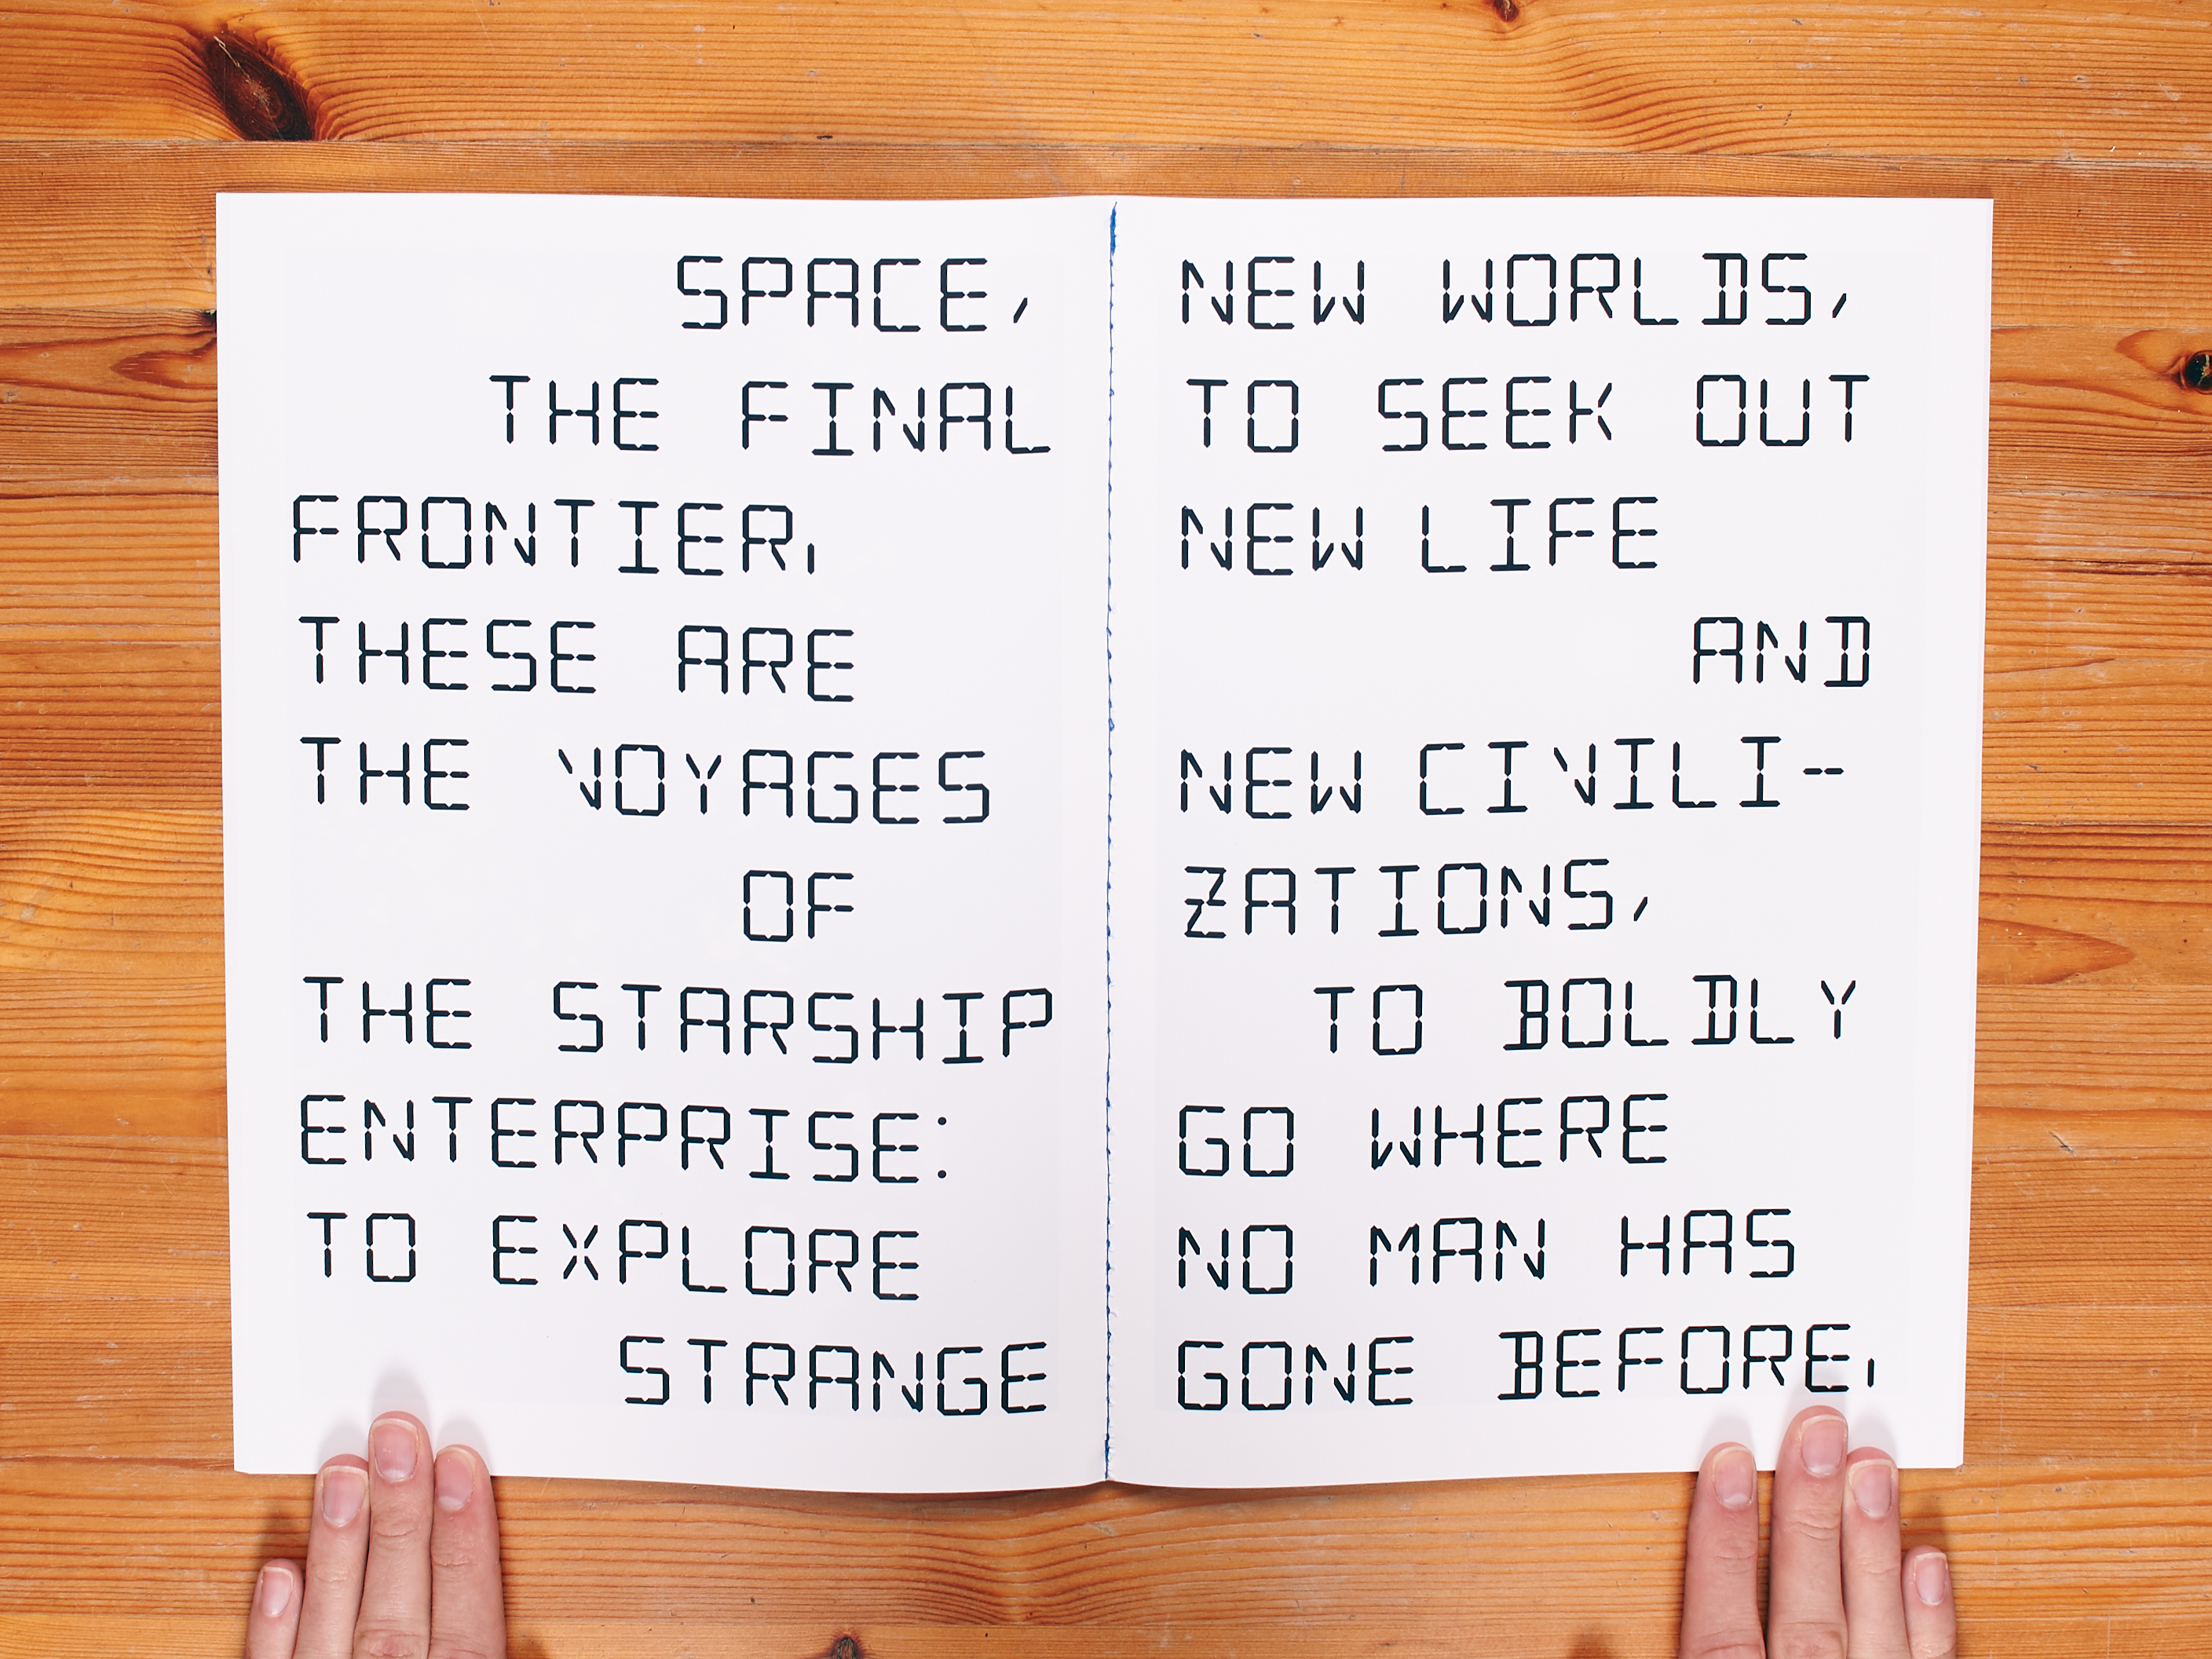 SPACE,
THE FINAL
FRONTIER.
THESE ARE
THE VOYAGES
OF
THE STARSHIP
ENTERPRISE:
TO EXPLORE
STRANGE
NEW WORLDS,
TO SEEK OUT
NEW LIFE
AND
NEW CIVILI-
ZATIONS,
TO BOLDLY
GO WHERE
NO MAN HAS
GONE BEFORE.